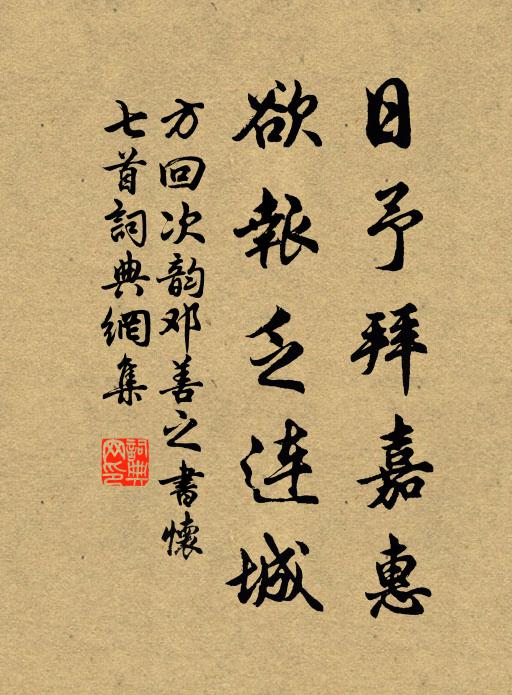 日予拜嘉惠
欲報乏连城
方回次韵邓善之書懷
七首詞典網集
詞典
网印